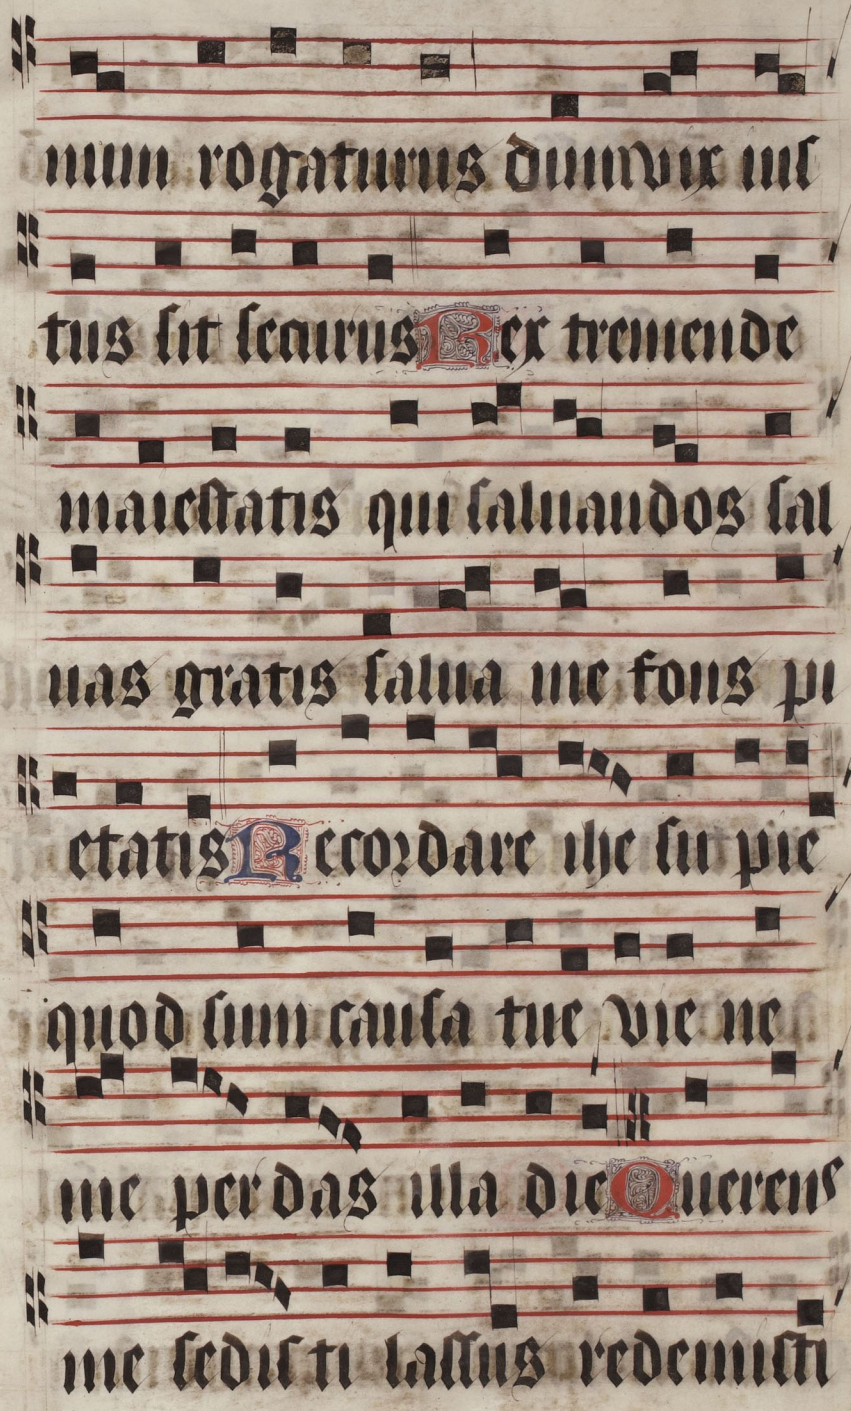 num rogaturus dum vix ius
tus sit securus Rex tremende
maiestatis qui saluandos sal
uas gratis salua me fons pi
etatis Recordare ihesu pie
quod sum causa tue vie ne
me perdas illa die Querens
me sedisti lassus redemisti